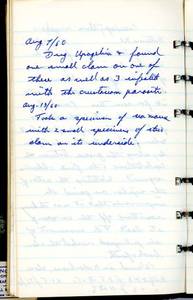 Aug 7/60
Dug Upogebia & found
one small clam on one of
them as well as 3 infested
with the crustacean parasite.
Aug. 13/60
Took a specimen of
with 2 small specimens of this
clam on its underside.